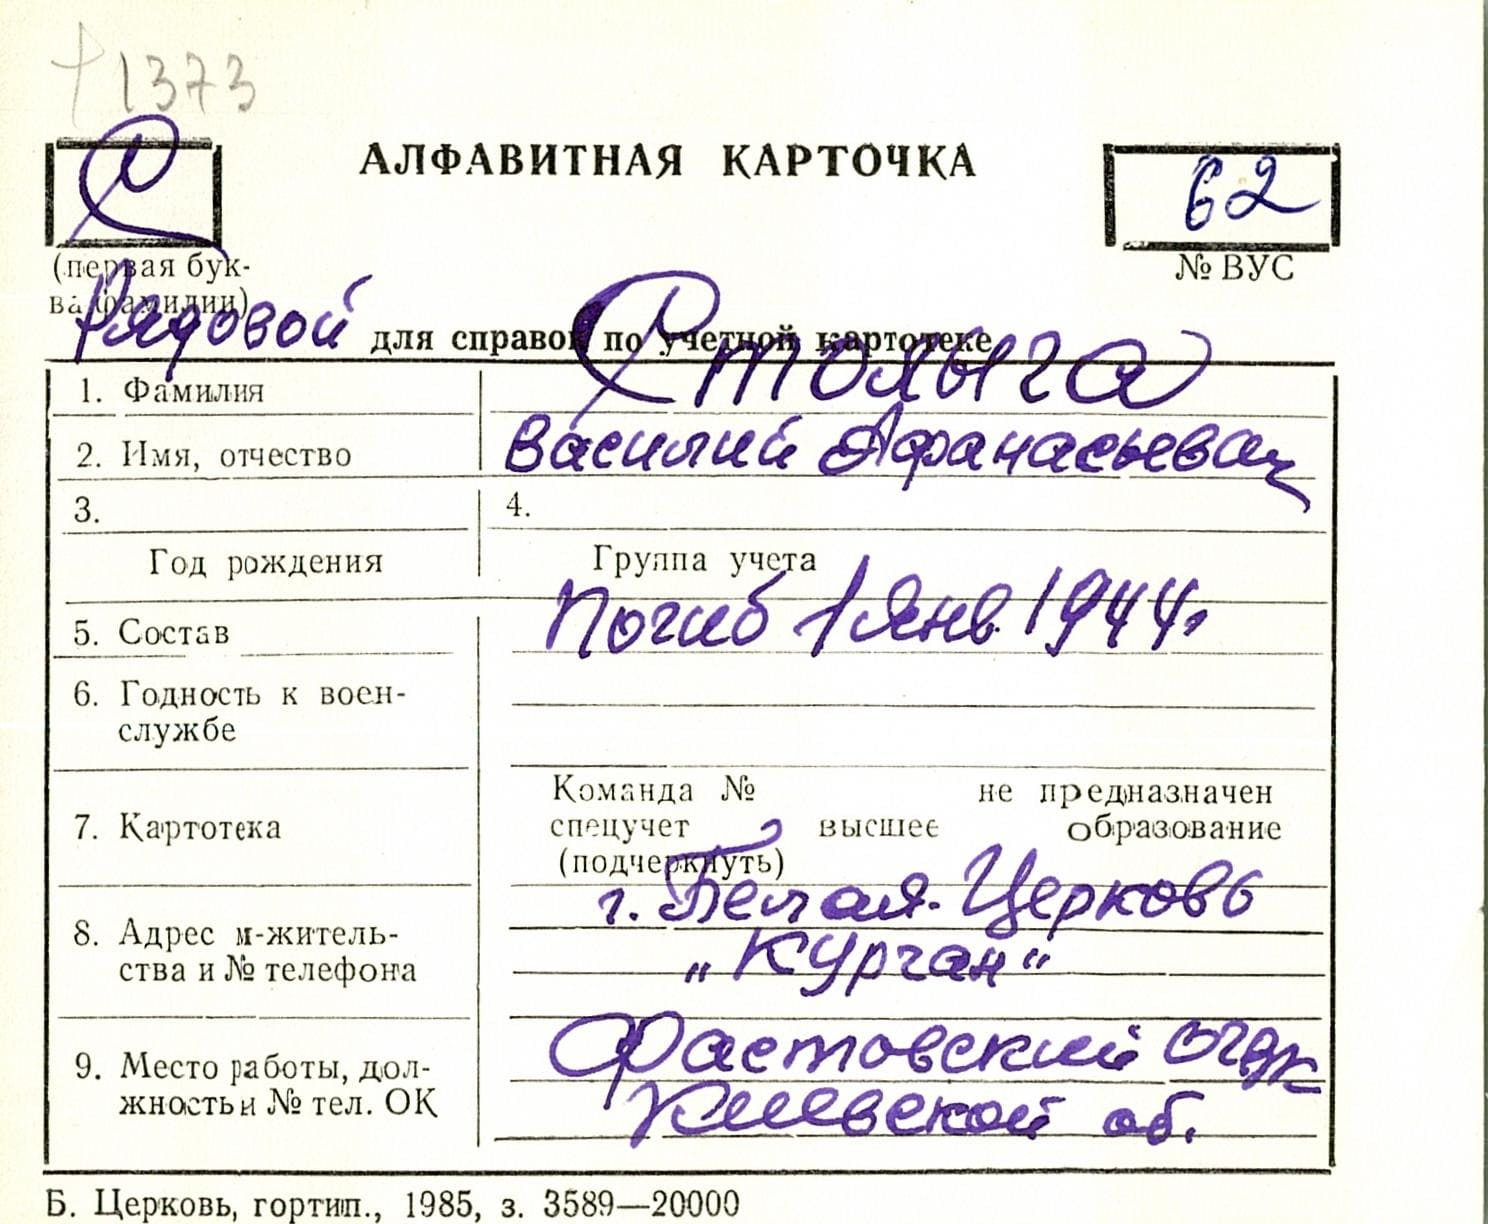 1373
С
АЛФАВИТНАЯ КАРТОЧКА
62
(первая бук-
ва фамилии)
№ ВУС
Рядовой для справок по учетной картотеке
1. Фамилия Столыга
2. Имя, отчество Василий Афанасьевич
3. 4.
Год рождения Группа учета
5. Состав Погиб 1 янв. 1944 г.
6. Годность к воен-
службе
Команда № не предназначен
7. Картотека спецучет высшее образование
(подчеркнуть)
г. Белая-Церковь
8. Адрес м-житель-
ства и № телефона „Курган“
Фастовский
9. Место работы, дол-
жность и № тел. ОК Киевской об.
Б. Церковь, гортип., 1985, з. 3589—20000